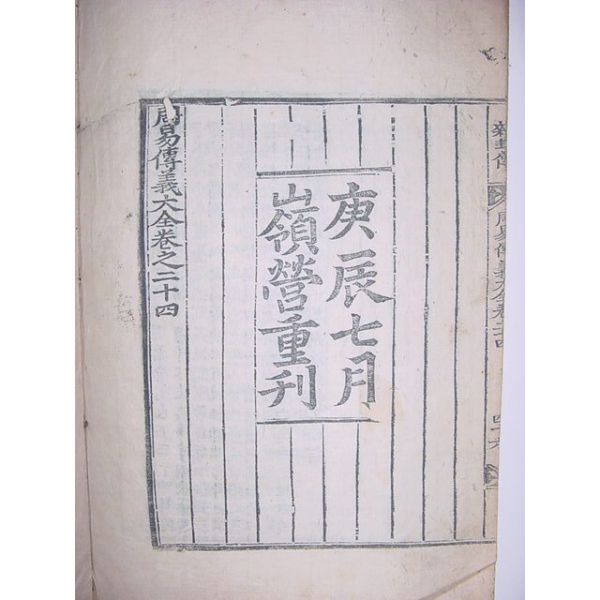 雜卦傳
周易傳義大全卷二十四
四十六
庚辰七月
嶺營重刊
周易傳義大全卷之二十四